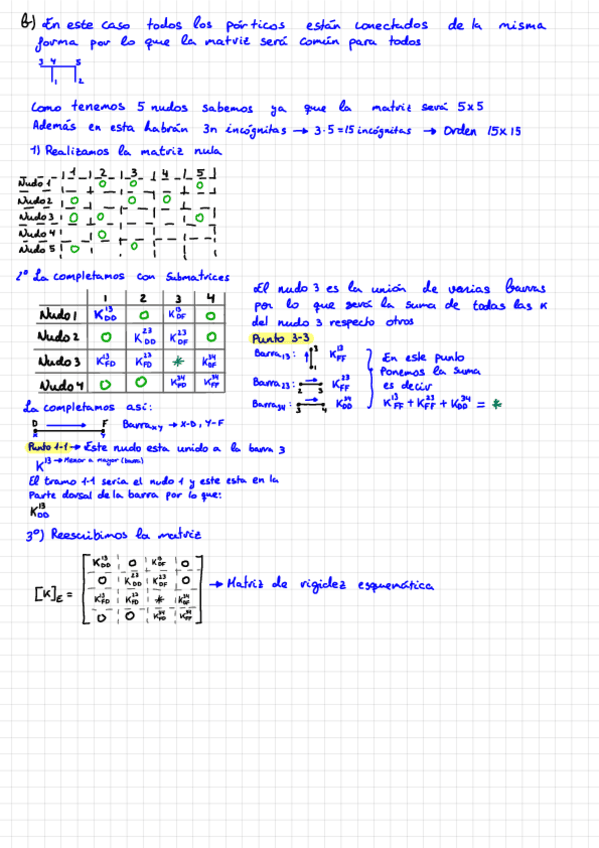 b) En este caso todos los pórticos están conectados de la misma
forma por lo que la matriz será común para todos
3 4 5
1 2
Como tenemos 5 nudos sabemos ya que la matriz será 5x5
Además en esta habrán 3n incógnitas → 3·5=15 incógnitas → Orden 15x15
1) Realizamos la matriz nula
1 2 3 4 5
Nudo 1 0 0 0
Nudo 2 0 0 0
Nudo 3 0 0 0
Nudo 4 0
Nudo 5 0 0
2º La completamos con submatrices
1 2 3 4
Nudo 1 K^13_DD 0 K^13_DF 0
Nudo 2 0 K^23_DD K^23_DF 0
Nudo 3 K^13_FD K^23_FD * K^34_DF
Nudo 4 0 0 K^34_FD K^34_FF
El nudo 3 es la unión de varias barras
por lo que será la suma de todas las K
del nudo 3 respecto otros
Punto 3-3
Barra13: 3 1 K^13_FF
Barra23: 2 3 K^23_FF
Barra34: 3 4 K^34_DD
En este punto
ponemos la suma
es decir
K^13_FF + K^23_FF + K^34_DD = *
La completamos así:
D F Barraxy → X-D, Y-F
X Y
Punto 1-1 → Este nudo esta unido a la barra 3
K^13 → Menor a mayor (barra)
El tramo 1-1 sería el nudo 1 y este esta en la
parte dorsal de la barra por lo que:
K^13_DD
3º) Reescribimos la matriz
[K]E =
K^13_DD 0 K^13_DF 0
0 K^23_DD K^23_DF 0
K^13_FD K^23_FD * K^34_DF
0 0 K^34_FD K^34_FF
→ Matriz de rigidez esquemática